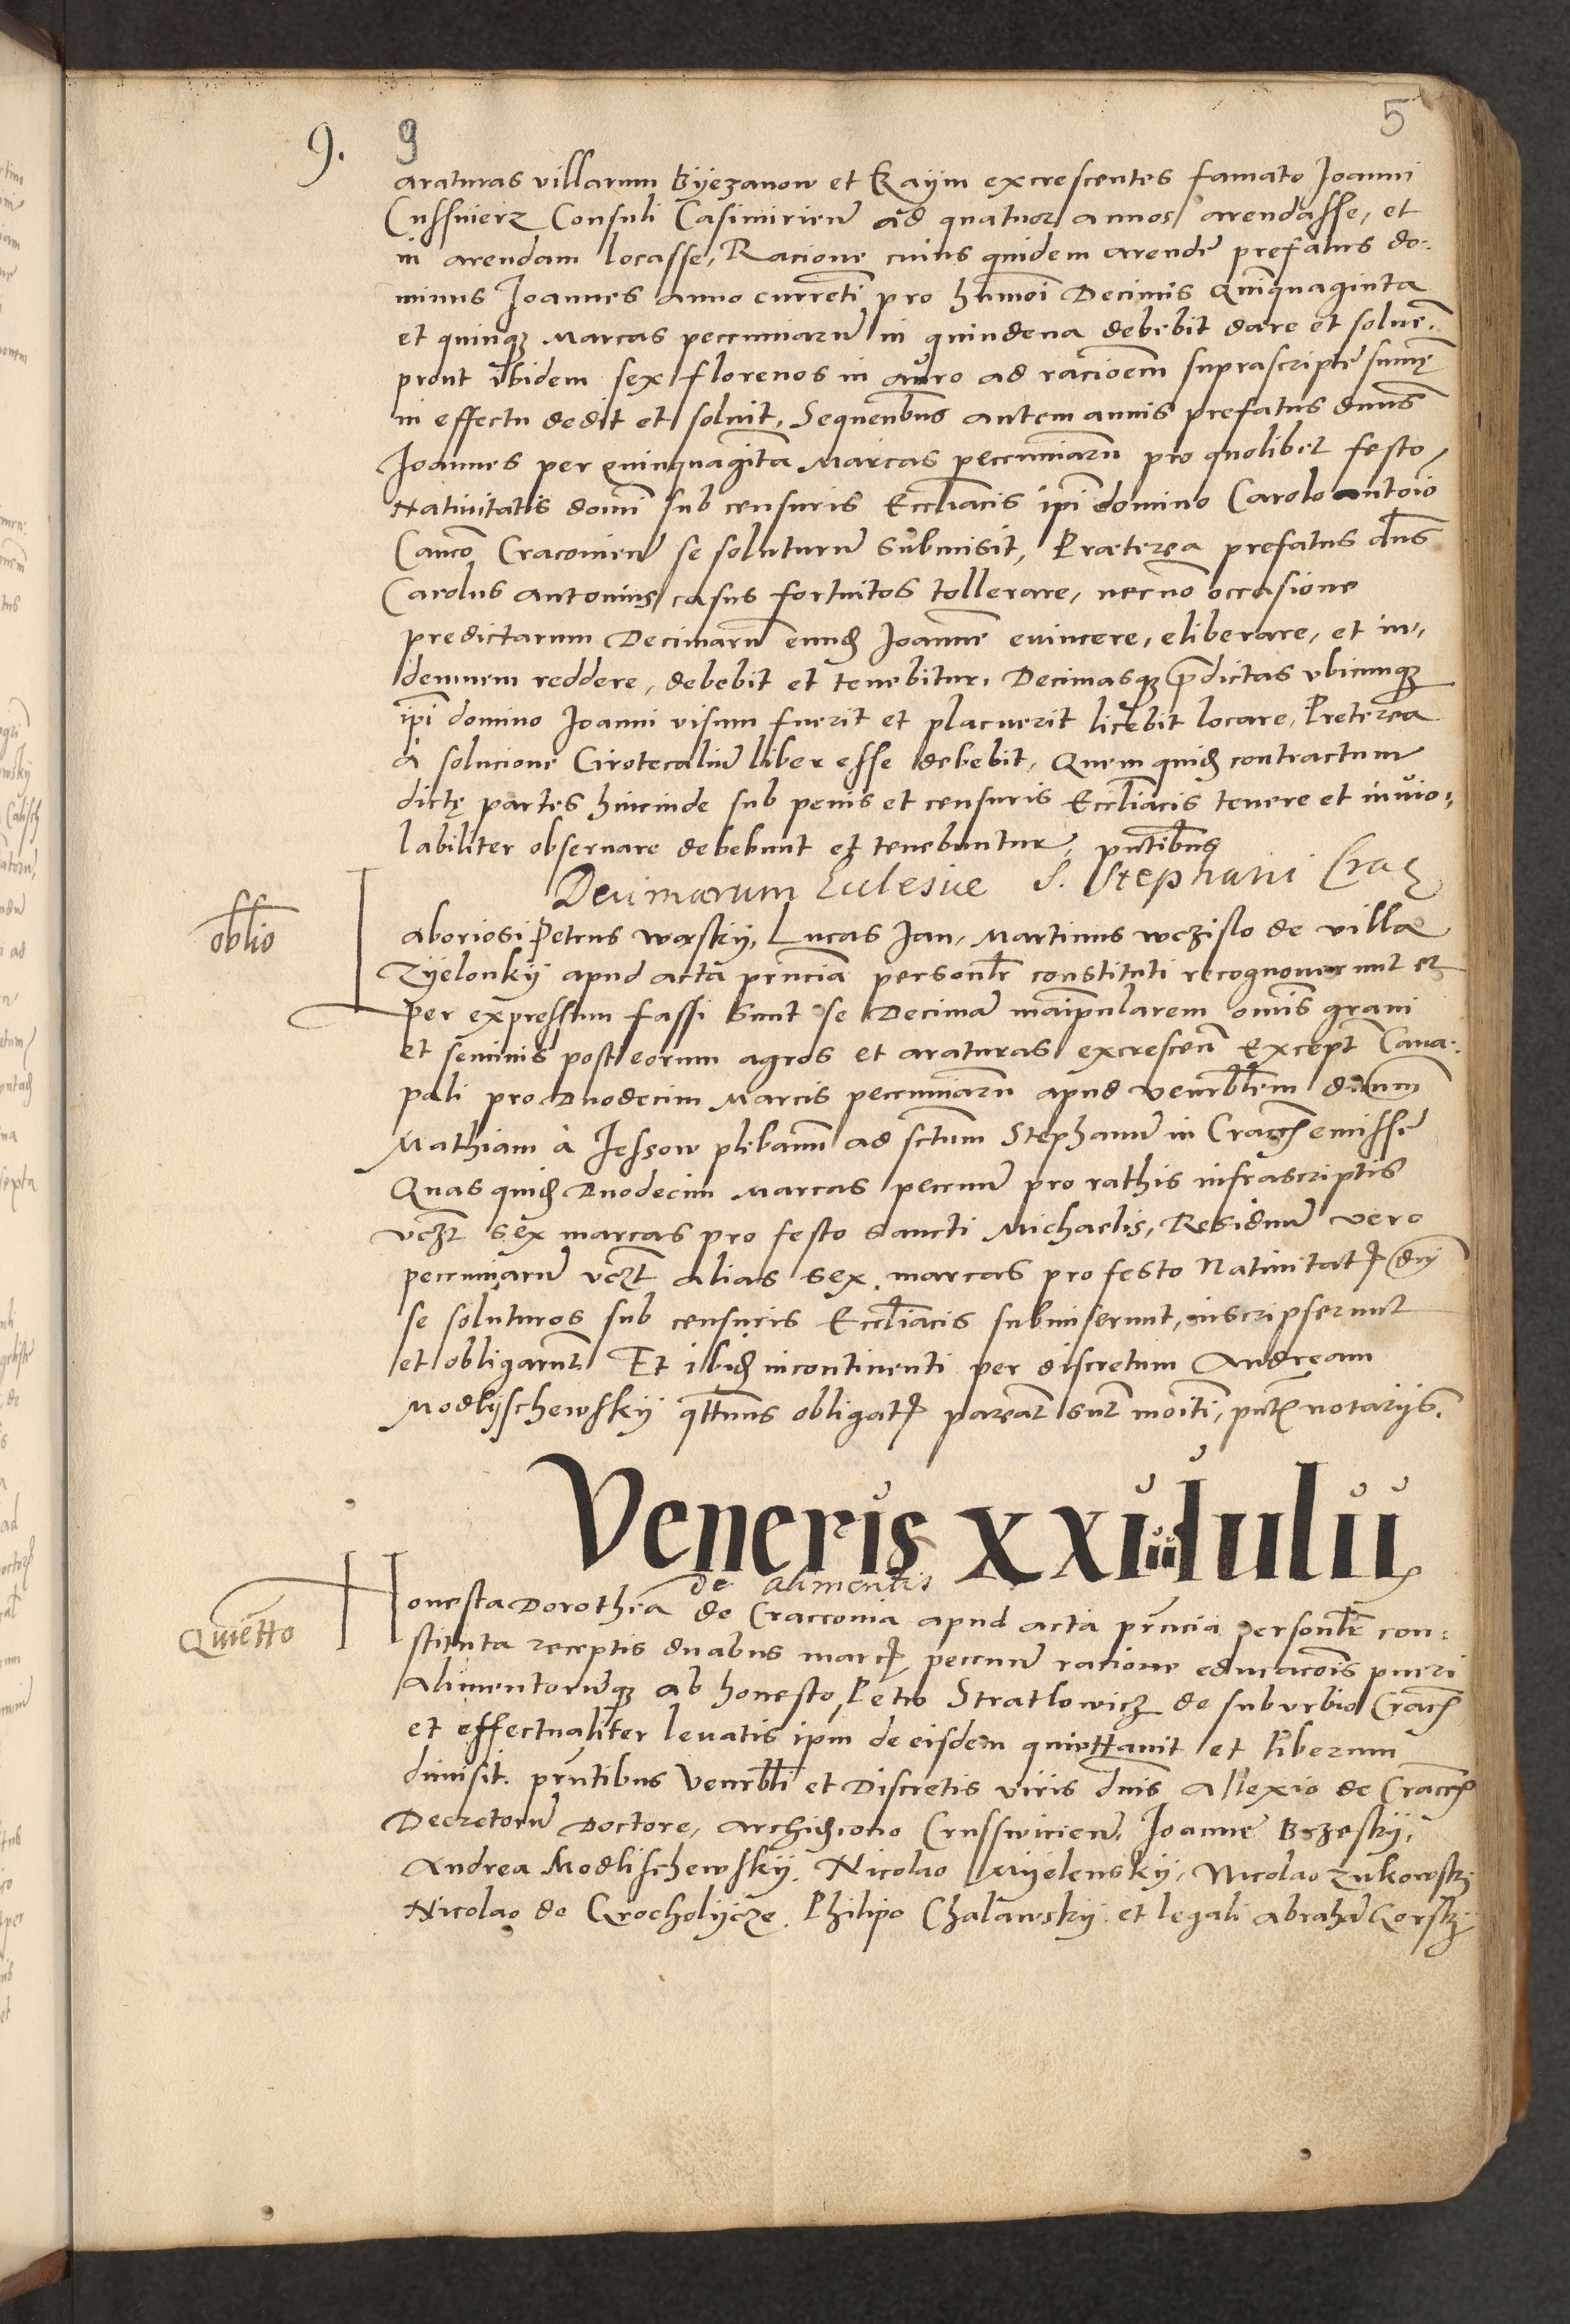 9. 9 5
araturas villarum Byezanow et Kaym excrescentes famato Joanni
Cussnierz Consuli Casimirien ad quatuor annos arendasse, et
in arendam locasse, Racione cuius quidem arende prefatus do-
minus Joannes anno currenti pro hmoi Decimis Quinquaginta
et quinque Marcas pecuniarum in quindena debebit dare et soluere.
prout ibidem sex florenos in auro ad racionem suprascripte summe
in effectu dedit et soluit, Sequentibus autem annis prefatus dnus
Joannes per quinquaginta Marcas pecuniarum pro quolibet festo
Natiuitatis domini sub censuris Eccliacis ipi domino Carolo Antoio
Canco Cracouien se soluturum submisit, Præterea prefatus dns
Carolus Antonius casus fortuitos tollerare, necno occasione
predictarum Decimarum eund Joannem euincere, eliberare, et in-
demnem reddere, debebit et tenebitur. Decimasque predictas vbicunque
ipi domino Joanni visum fuerit et placuerit licebit locare, Preterea
à solucione Cirotecalium liber esse debebit, Quem quid contractum
dictę partes hincinde sub penis et censuris Eccliacis tenere et inuio-
labiliter obseruare debebunt et tenebuntur, pntibus
Decimarum Eclesiae S. Stephani Crac
oblio
Laboriosi Petrus Worsky, Lucas Jan, Martinus Wczislo de villa
Zyelonky apud acta pruncia personlr constituti recognouerunt et
per expressum fassi sunt se Decimam manipularem omis grani
et seminis post eorum agros et araturas excrescen except Cana-
pali pro Duodecim Marcis pecuniarum apud venerblem dnum
Mathiam à Jessow plebanum ad sctum Stephanum in Cracc emisse
Quas quid Duodecim Marcas pecunia pro rathis infrascriptis
vczt sex marcas pro festo sancti Michaelis, Residuum vero
pecuniarum vczt alias sex marcas pro festo Natiuitatis dni
se soluturos sub censuris Eccliacis submiserunt, inscripserunt
et obligarunt Et ibid incontinenti per discretum Andream
Modlyschewsky qttnus obligatis pareant sunt moiti, pntibus notarijs.
Veneris XXiiii Julii
de alimentis
Quietto
Honesta Dorothea de Cracconia apud acta pruncia personlr con-
stituta receptis duabus marcis pecunia ratione educacois pueri
Alimentorumque ab honesto Petro Stratlowicz de suburbio Cracc
et effectualiter leuatis ipm de eisdem quiettauit et liberum
dimisit. pruntibus Venerbli et Discretis viris dnis Allexio de Cracc
Decretorum Doctore, Archidcono Crusswicien, Joanne Brzesky,
Andrea Modlischewsky, Nicolao Myelensky, Nicolao Zukowsky
Nicolao de Grocholycze, Philipo Chalawsky et legali Abraham Gorsky